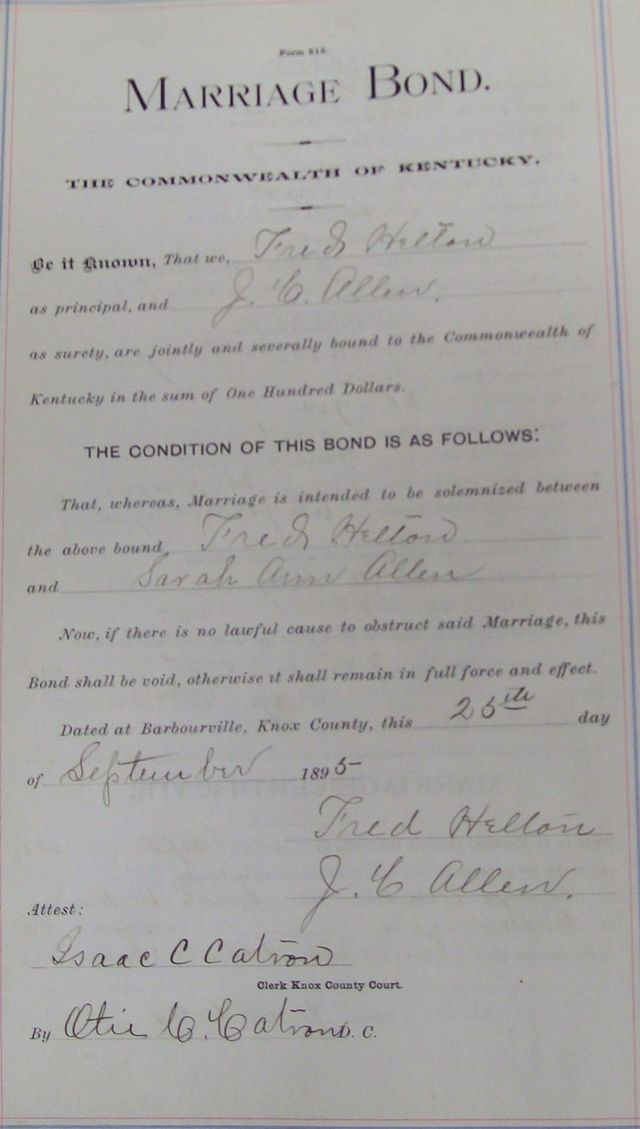 Form 816.
MARRIAGE BOND.
THE COMMONWEALTH OF KENTUCKY.
Be it Known, That we, Fred Helton
as principal, and J. C. Allen.
as surety, are jointly and severally bound to the Commonwealth of
Kentucky in the sum of One Hundred Dollars.
THE CONDITION OF THIS BOND IS AS FOLLOWS:
That, whereas, Marriage is intended to be solemnized between
the above bound, Fred Helton
and Sarah Ann Allen
Now, if there is no lawful cause to obstruct said Marriage, this
Bond shall be void, otherwise it shall remain in full force and effect.
Dated at Barbourville, Knox County, this 25th day
of September 1895
Fred Helton
J. C Allen.
Attest:
Isaac C Catron
Clerk Knox County Court.
By Otie C. Catron D. C.